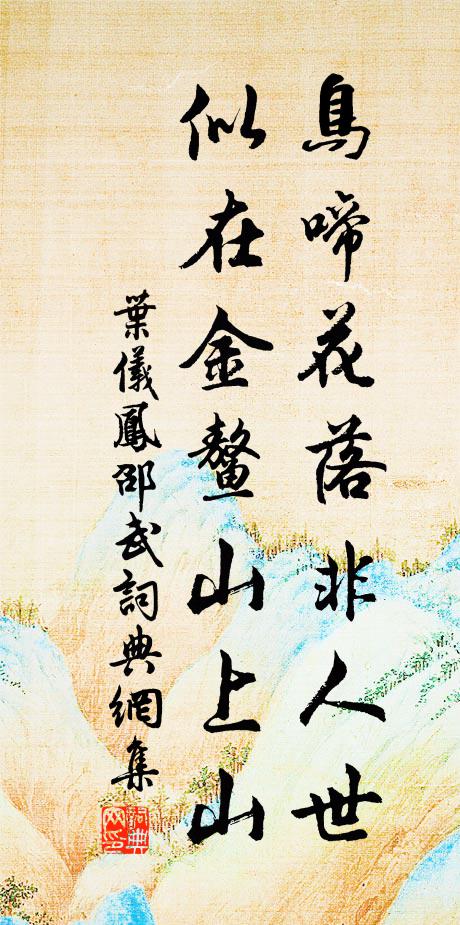 鳥啼花落非人世
似在金鰲山上山
葉儀鳳邵武詞典網集
詞典
网印